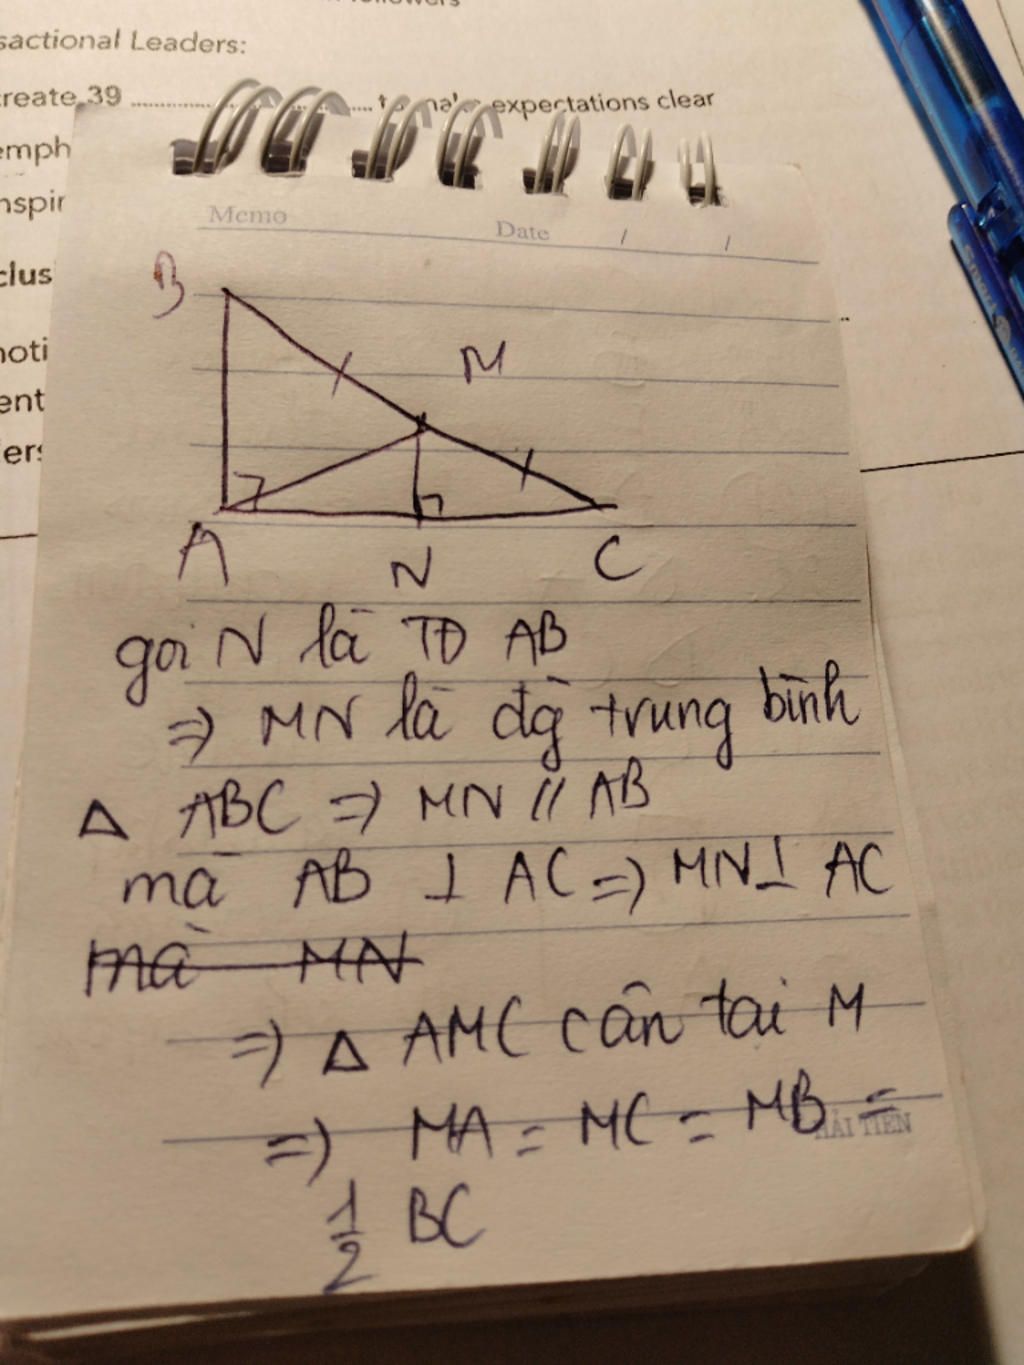 followers
sactional Leaders:
create 39 .................... to make expectations clear
emph
nspir
clus
noti
ent
ers
Smart
Memo
Date / /
B
M
A N C
gọi N là TĐ AB
=> MN là đg trung bình
Δ ABC => MN // AB
mà AB ⊥ AC => MN ⊥ AC
mà MN
=> Δ AMC cân tại M
=> MA = MC = MB =
HẢI TIẾN
1/2 BC